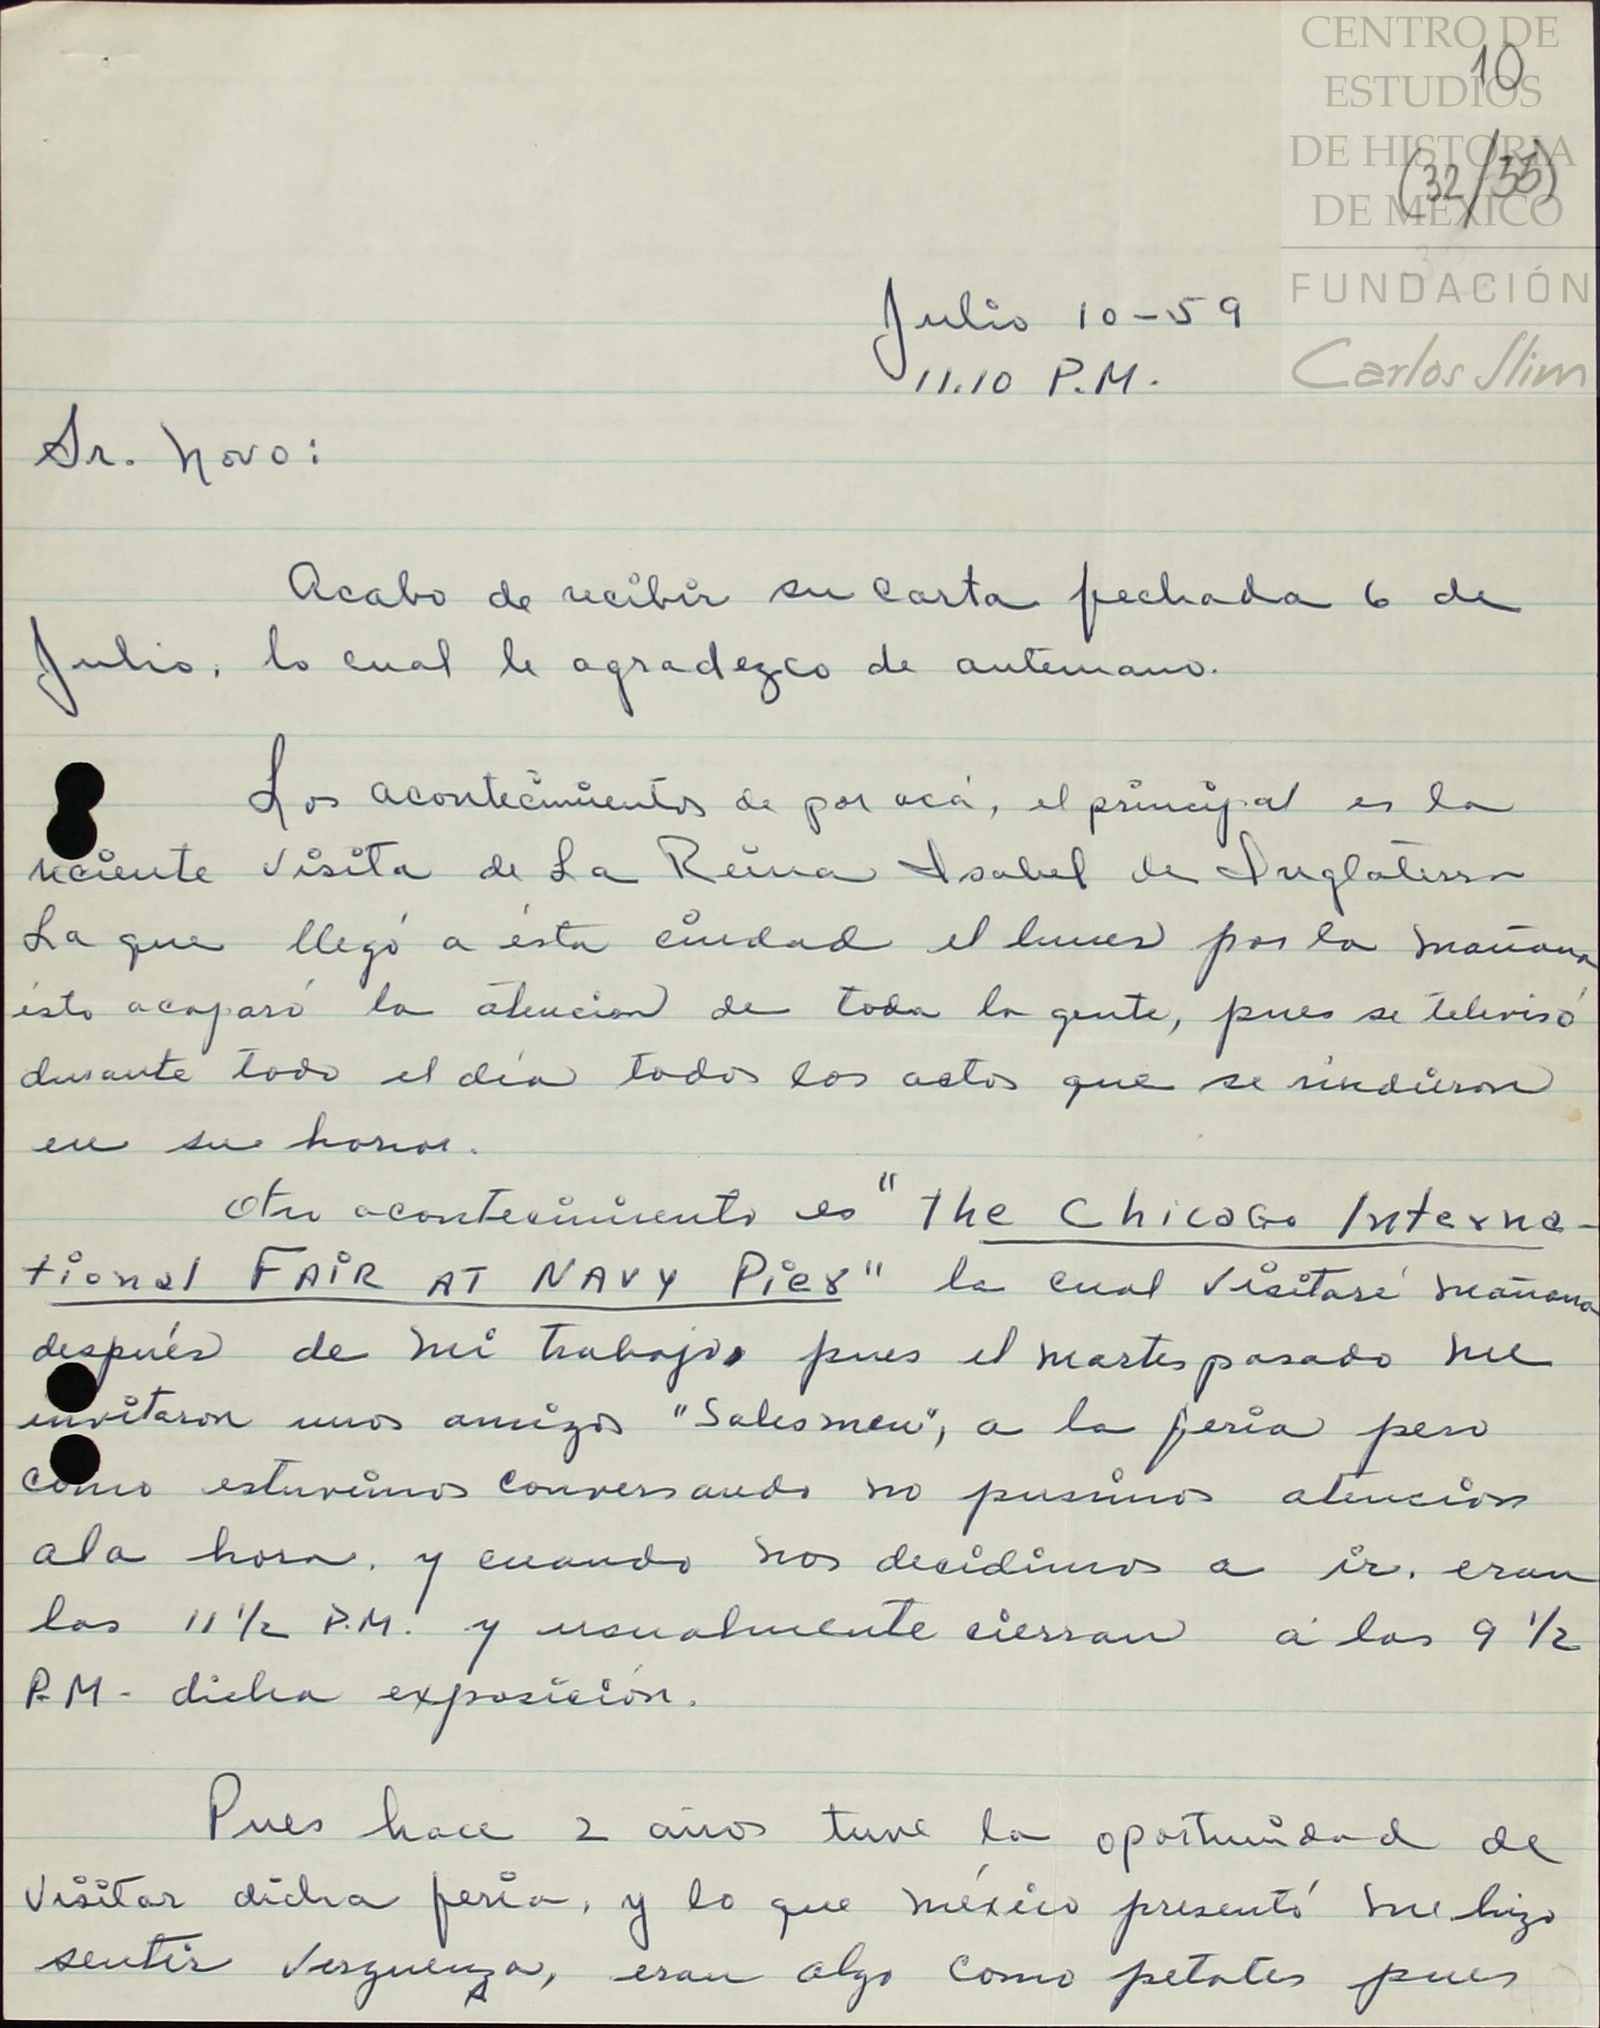 CENTRO DE
ESTUDIOS
DE HISTORIA
DE MÉXICO
FUNDACIÓN
Carlos Slim
10
(32/33)
Julio 10-59
11.10 P.M.
Sr. Novo:
Acabo de recibir su carta fechada 6 de
Julio, lo cual le agradezco de antemano.
Los acontecimientos de por acá, el principal es la
reciente visita de La Reina Isabel de Inglaterra
La que llegó a ésta ciudad el lunes por la mañana
ésto acaparó la atencion de toda la gente, pues se televisó
durante todo el día todos los actos que se rindieron
en su honor.
Otro acontecimiento es "The Chicago Interna-
tional FAIR AT NAVY Pier" la cual visitaré mañana
después de mi trabajo, pues el martes pasado me
invitaron unos amigos "Salesmen", a la feria pero
como estuvimos conversando no pusimos atencion
a la hora. y cuando nos decidimos a ir. eran
las 11 1/2 P.M. y usualmente cierran á las 9 1/2
P.M. dicha exposición.
Pues hace 2 años tuve la oportunidad de
visitar dicha feria, y lo que méxico presentó me hizo
sentir verguenza, eran algo como petates pues